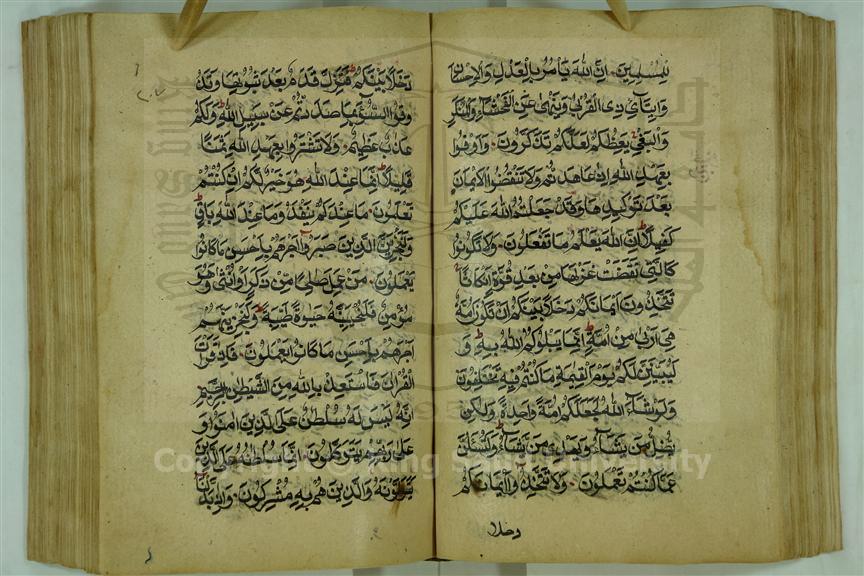 للمسلمين ان الله يأمر بالعدل والاحسان
وايتآئ ذى القربى وينهى عن الفحشآء والمنكر
والبغى يعظكم لعلكم تذكرون واوفوا
بعهد الله اذا عاهدتم ولا تنقضوا الايمان
بعد توكيدها وقد جعلتم الله عليكم
كفيلا ان الله يعلم ما تفعلون ولا تكونوا
كالتى نقضت غزلها من بعد قوة انكاثا
تتخذون ايمانكم دخلا بينكم ان تكون امة
هى اربى من امة انما يبلوكم الله به و
ليبينن لكم يوم القيمة ما كنتم فيه تختلفون
ولو شآء الله لجعلكم امة واحدة ولكن
يضل من يشآء ويهدى من يشآء ولتسئلن
عما كنتم تعملون ولا تتخذوا ايمانكم
دخلا
دخلا بينكم فتزل قدم بعد ثبوتها وتذ
وقوا السوء بما صددتم عن سبيل الله ولكم
عذاب عظيم ولا تشتروا بعهد الله ثمنا
قليلا انما عند الله هو خير لكم ان كنتم
تعلمون ما عندكم ينفد وما عند الله باق
ولنجزين الذين صبروا اجرهم باحسن ما كانوا
يعملون من عمل صلحا من ذكر او انثى وهو
مؤمن فلنحيينه حيوة طيبة ولنجزينهم
اجرهم باحسن ما كانوا يعملون فاذا قرات
القران فاستعذ بالله من الشيطن الرجيم
انه ليس له سلطن على الذين امنوا و
على ربهم يتوكلون انما سلطنه على الذين
يتولونه والذين هم به مشركون واذا بدلنا
Copyright © King Saud University